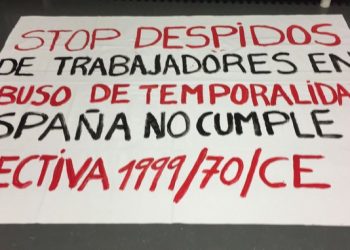 STOP DESPIDOS
DE TRABAJADORES EN
BUSO DE TEMPORALIDA
SPAÑA NO CUMPLE
ECTIVA 1999/70/CE